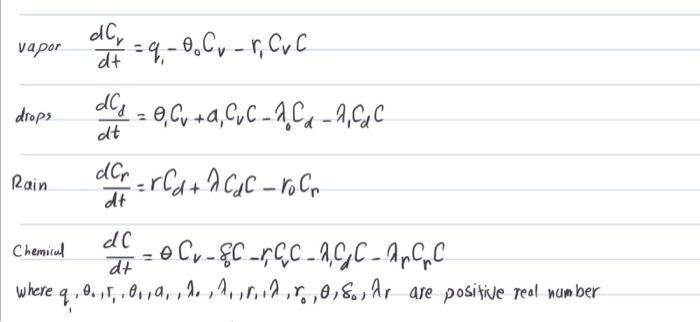 vapor dCv/dt = q, - θ₀Cv - r₁CvC
drops dCd/dt = θ₁Cv + a₁CvC - λ₀Cd - λ₁CdC
Rain dCr/dt = rCd + λCdC - r₀Cr
Chemical dC/dt = θCv - δ₀C - r₁CvC - λ₁CdC - λrCrC
where q, θ₀, r₁, θ₁, a₁, λ₀, λ₁, r, λ, r₀, θ, δ₀, λr are positive real number